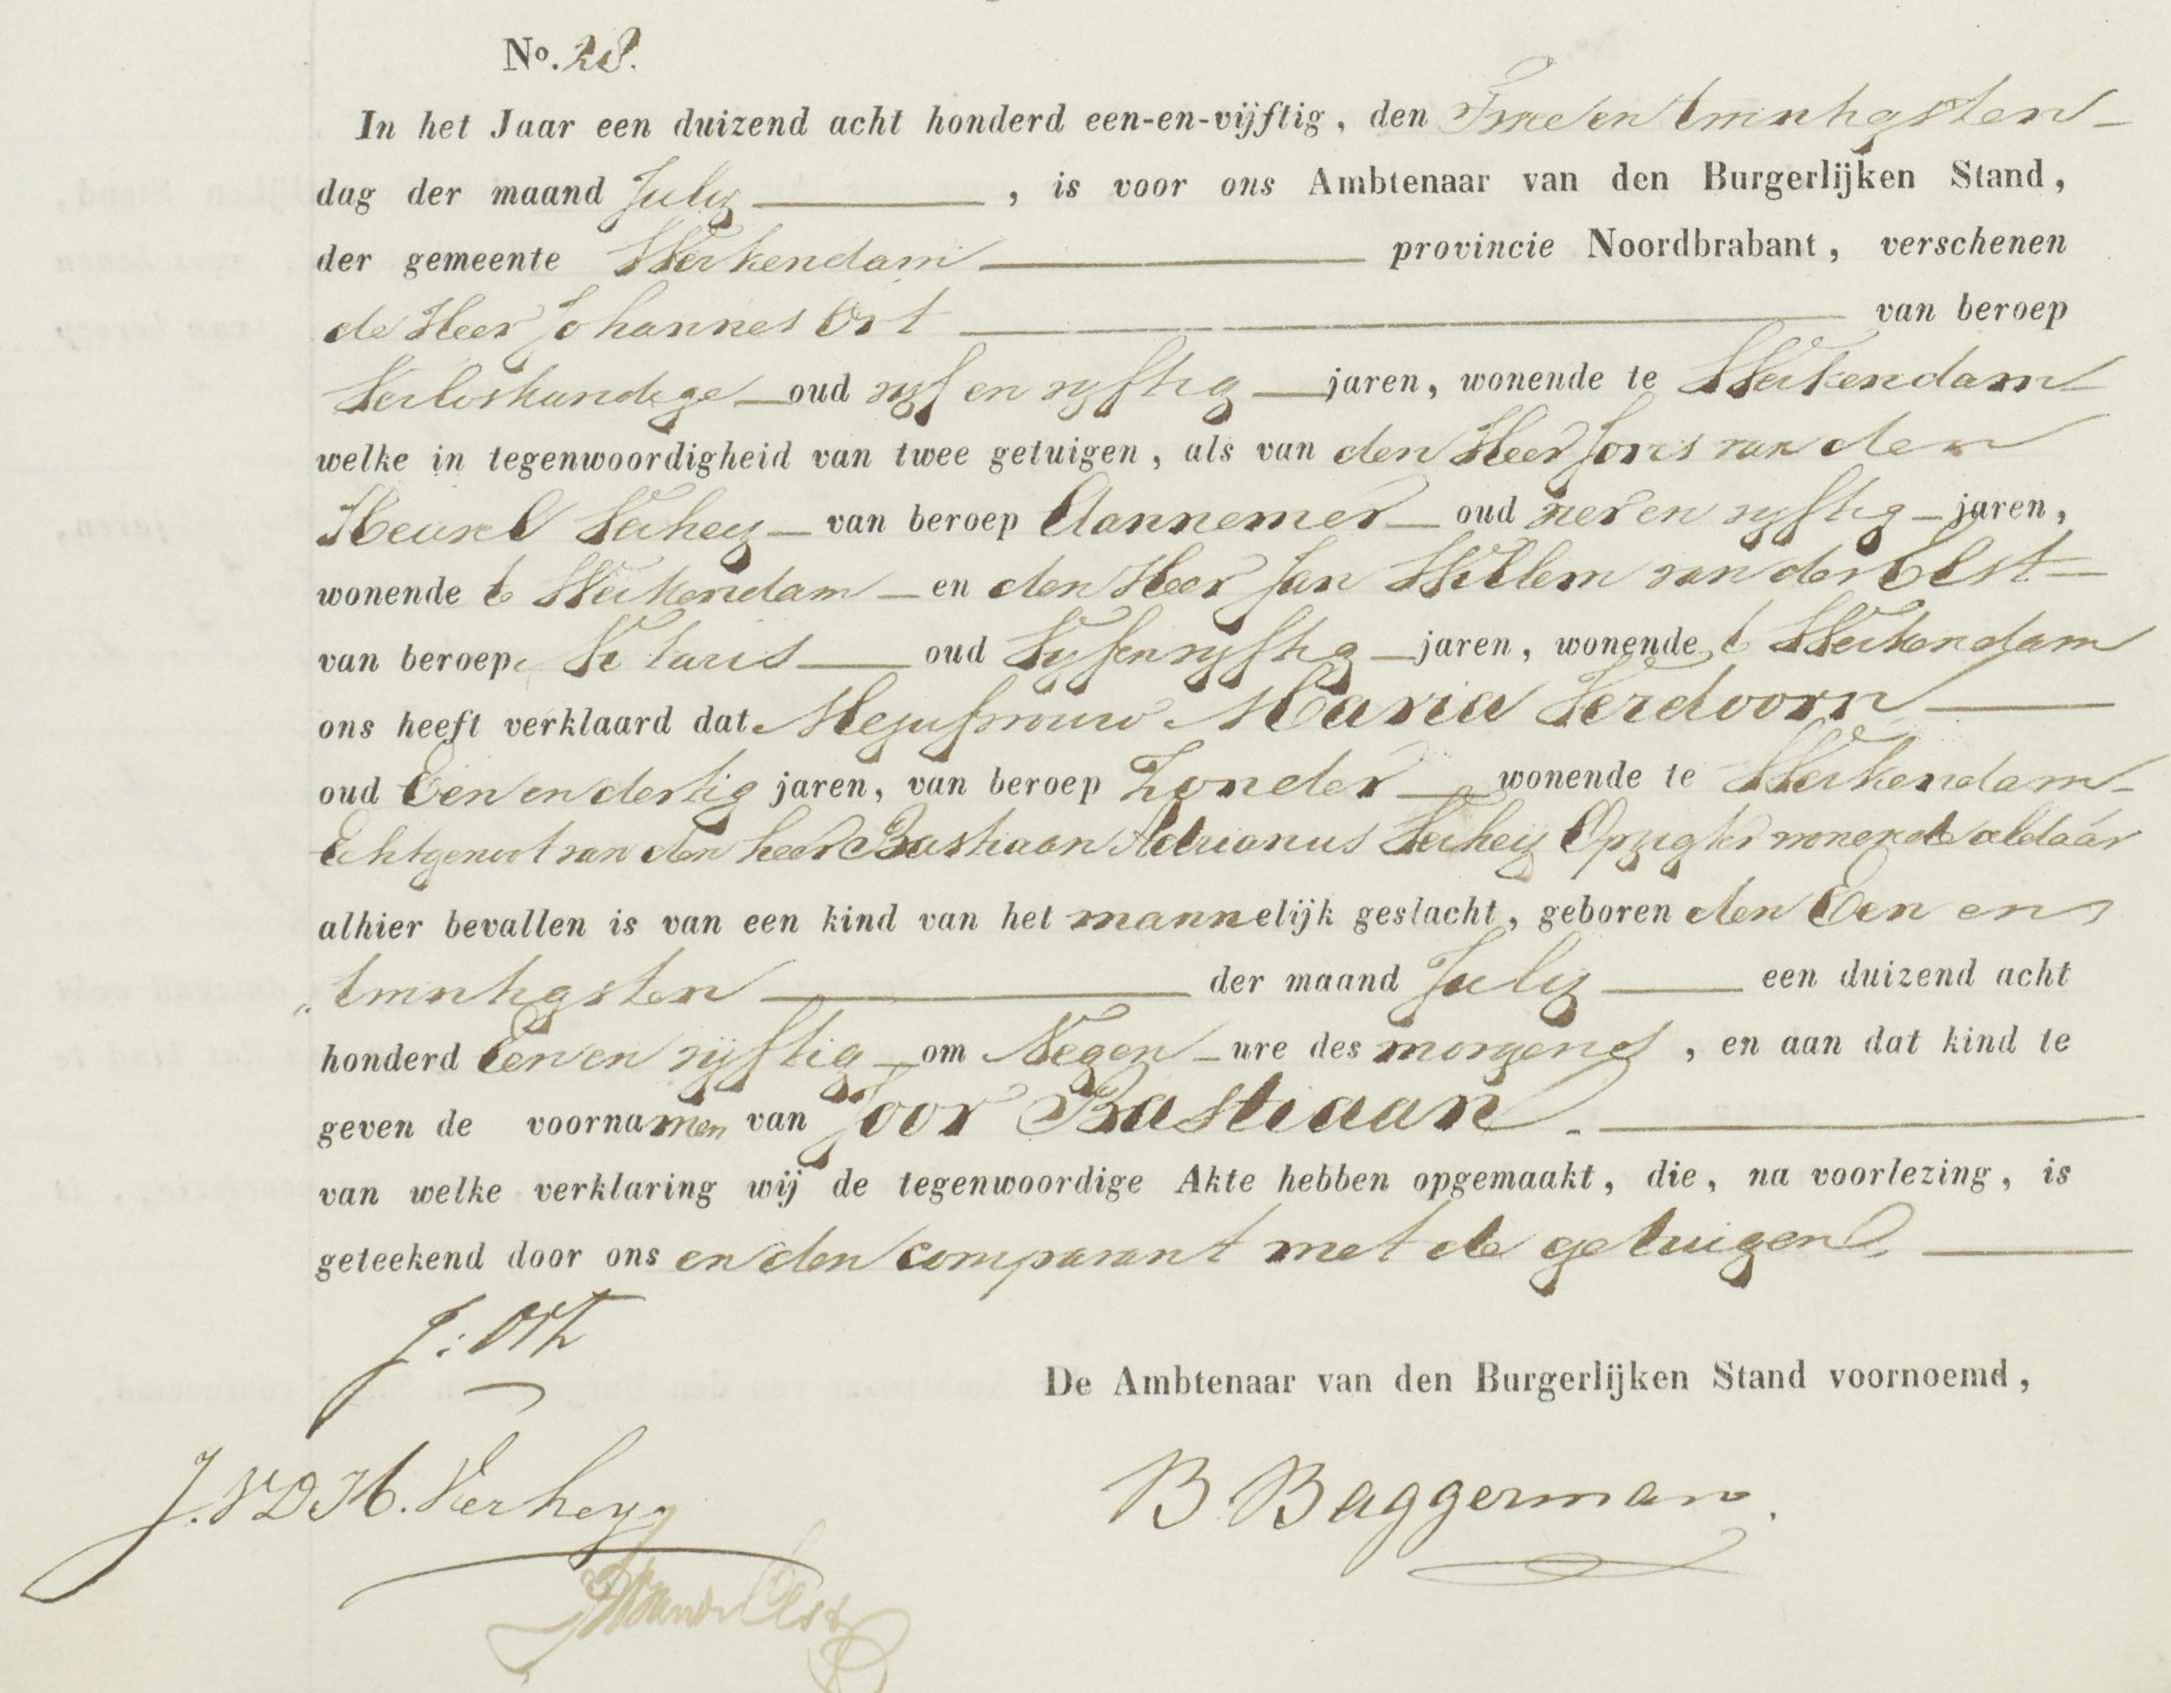 No. 28.
In het Jaar een duizend acht honderd een-en-vijftig, den Twee en twintigsten
dag der maand July, is voor ons Ambtenaar van den Burgerlijken Stand,
der gemeente Werkendam provincie Noordbrabant, verschenen
de Heer Johannes Ort van beroep
Verloskundige oud vyf en vyftig jaren, wonende te Werkendam
welke in tegenwoordigheid van twee getuigen, als van den Heer Joris van den
Heuvel Verhey van beroep Aannemer oud vier en vyftig jaren,
wonende te Werkendam en den Heer Jan Willem van der Elst
van beroep Notaris oud Vyfenvyftig jaren, wonende te Werkendam
ons heeft verklaard dat Mejufvrouw Maria Verdoorn
oud Een en dertig jaren, van beroep Zonder wonende te Werkendam
Echtgenoot van den heer Bastiaan Adrianus Verhey Opzigter wonende aldaár
alhier bevallen is van een kind van het mannelijk geslacht, geboren den Een en
twintigsten der maand July een duizend acht
honderd Een en vyftig om Negen ure des morgens, en aan dat kind te
geven de voornamen van Joor Bastiaan.
van welke verklaring wij de tegenwoordige Akte hebben opgemaakt, die, na voorlezing, is
geteekend door ons en den comparant met de getuigen.
J: Ort
De Ambtenaar van den Burgerlijken Stand voornoemd,
J. V D H. Verhey
B. Baggerman.
JW van der Elst